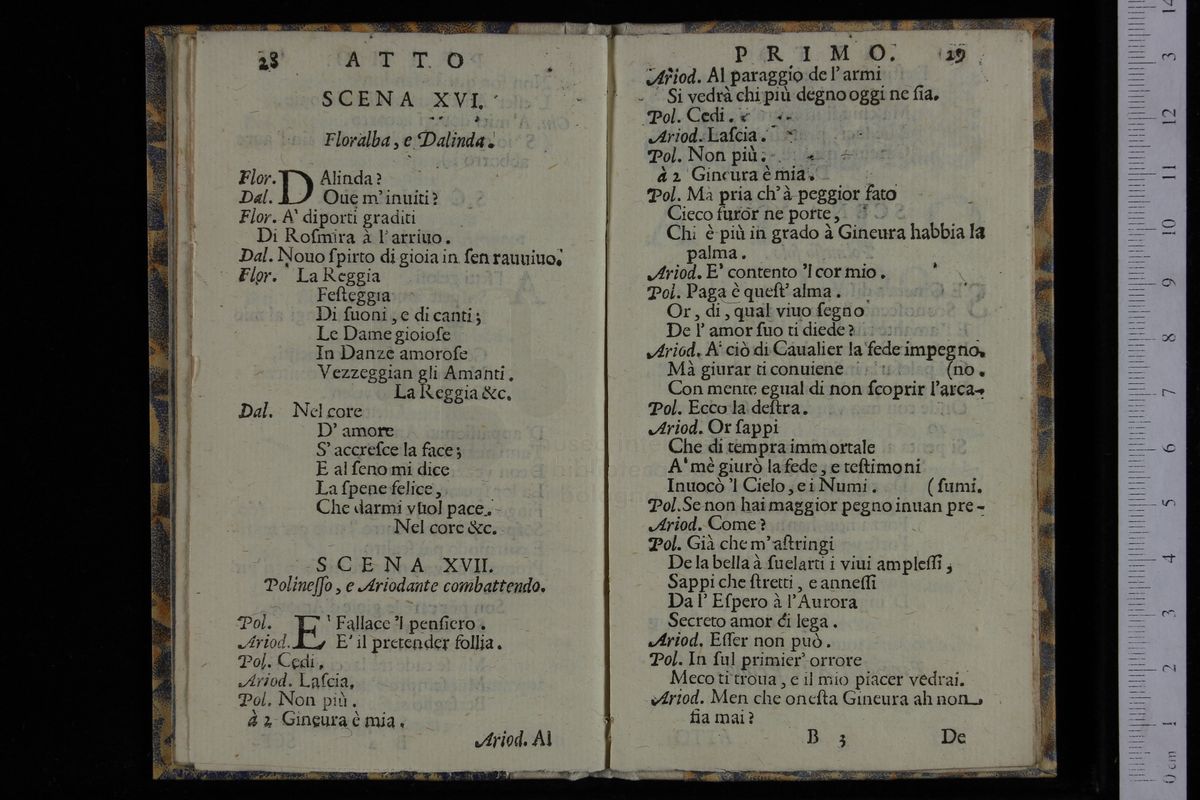 28 ATTO
SCENA XVI.
Floralba, e Dalinda.
Flor. DAlinda?
Dal. Oue m'inuiti?
Flor. A' diporti graditi
Di Roſmira à l'arriuo.
Dal. Nouo ſpirto di gioia in ſen rauuiuo.
Flor. La Reggia
Feſteggia
Di ſuoni, e di canti;
Le Dame gioioſe
In Danze amoroſe
Vezzeggian gli Amanti.
La Reggia &c.
Dal. Nel core
D' amore
S' accreſce la face;
E al ſeno mi dice
La ſpene felice,
Che darmi vuol pace.
Nel core &c.
SCENA XVII.
Polineſſo, e Ariodante combattendo.
Pol. E' Fallace 'l penſiero.
Ariod. E' il pretender follia.
Pol. Cedi.
Ariod. Laſcia.
Pol. Non più.
à 2 Gineura è mia.
Ariod. Al
PRIMO. 29
Ariod. Al paraggio de l'armi
Si vedrà chi più degno oggi ne ſia.
Pol. Cedi.
Ariod. Laſcia.
Pol. Non più.
à 2 Gineura è mia.
Pol. Ma pria ch' à peggior fato
Cieco furor ne porte,
Chi è più in grado à Gineura habbia la
palma.
Ariod. E' contento 'l cor mio.
Pol. Paga è queſt' alma.
Or, di, qual viuo ſegno
De l' amor ſuo ti diede?
Ariod. A' ciò di Caualier la fede impegno.
Mà giurar ti conuiene (no.
Con mente egual di non ſcoprir l'arca-
Pol. Ecco la deſtra.
Ariod. Or ſappi
Che di tempra immortale
A' mè giurò la fede, e teſtimoni
Inuocò 'l Cielo, e i Numi. (ſumi.
Pol. Se non hai maggior pegno inuan pre-
Ariod. Come?
Pol. Già che m'aſtringi
De la bella à ſuelarti i viui ampleſſi,
Sappi che ſtretti, e anneſſi
Da l' Eſpero à l'Aurora
Secreto amor ci lega.
Ariod. Eſſer non può.
Pol. In ſul primier' orrore
Meco ti troua, e il mio piacer vedrai.
Ariod. Men che oneſta Gineura ah non
ſia mai?
B 3 De